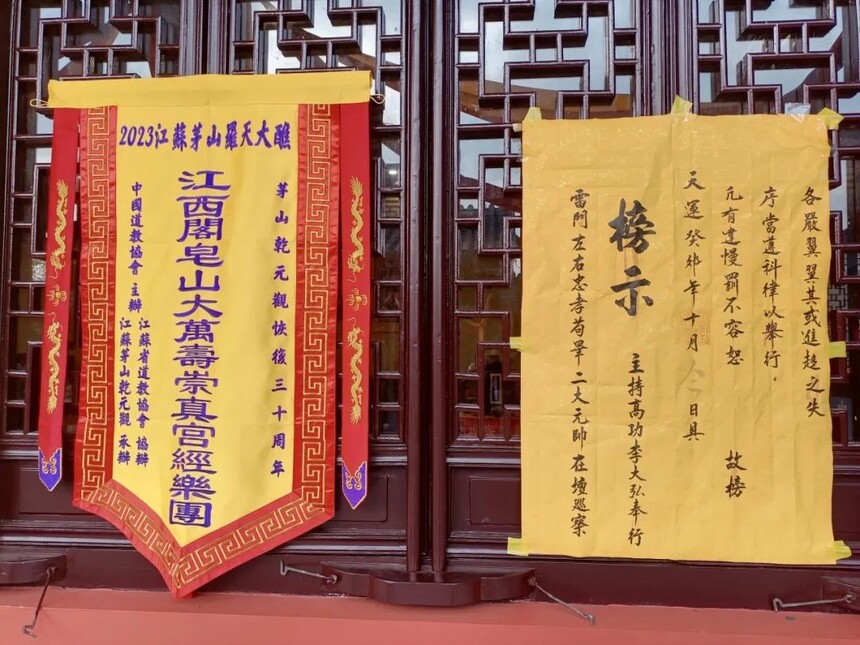 2023江蘇茅山羅天大醮
茅山乾元觀恢復三十周年
江西閣皂山大萬壽崇真宫經樂團
中國道教協會 主辦
江蘇省道教協會 協辦
江蘇茅山乾元觀 承辦
各嚴翼翼其或進趍之失
序當遵科律以舉行，
亢有違慢罰不容恕 故榜
天運癸卯年十月 日具
主持高功李大弘奉行
榜示
雷門左右忠孝苟畢二大元帥在壇巡察